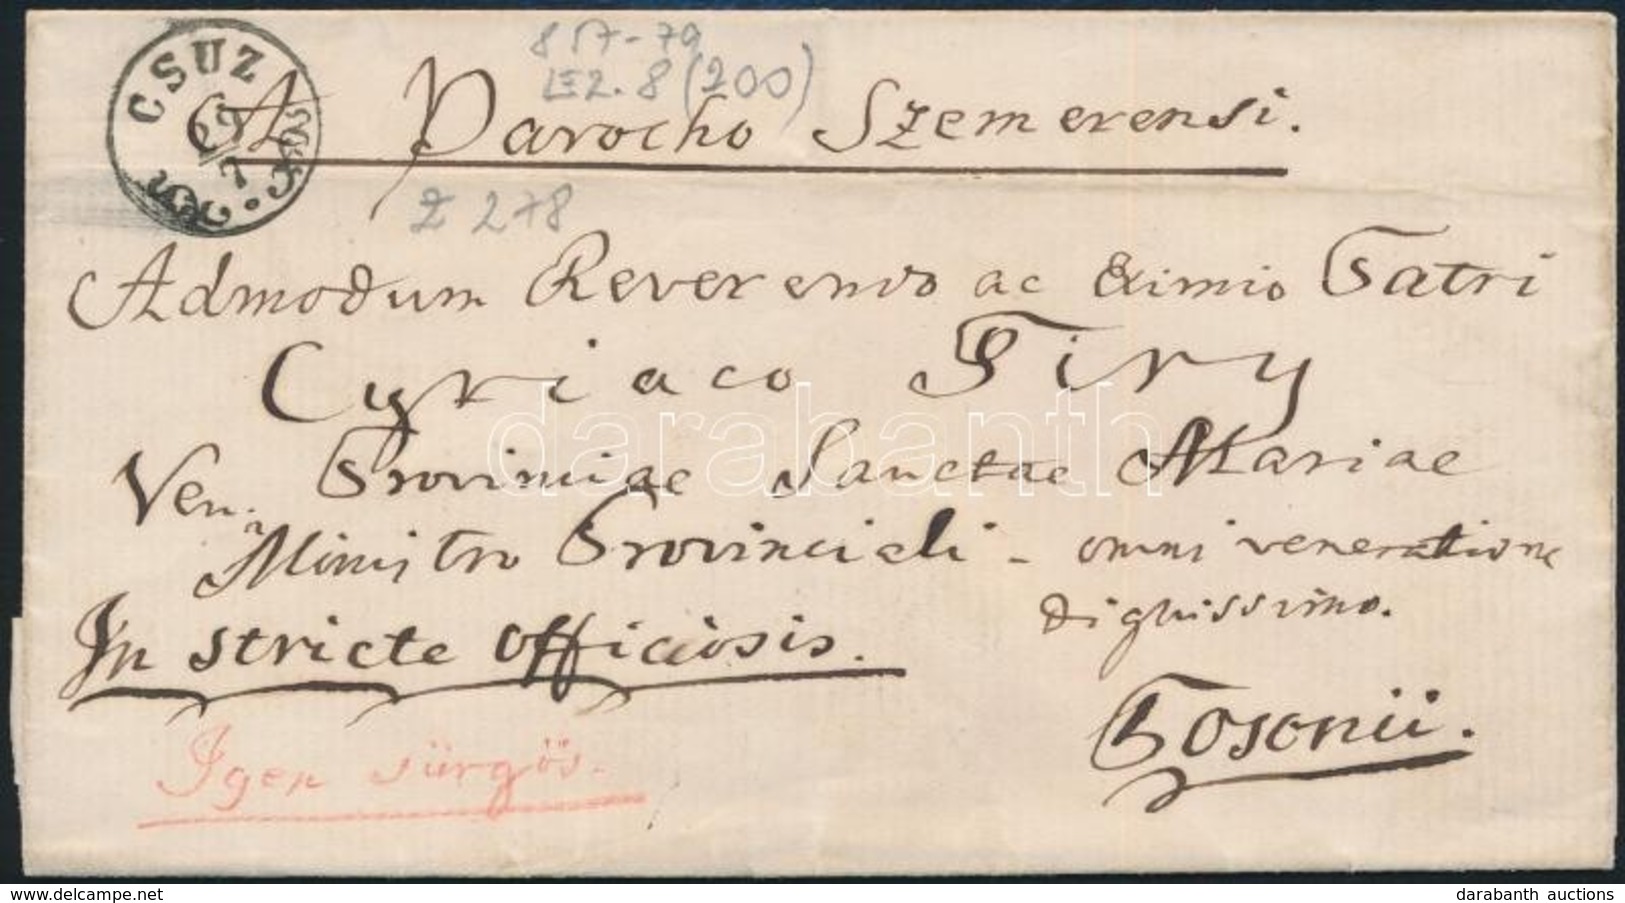 CSUZ
857-79
LEZ. 8 (200)
A Parocho Szemerensi.
Z 278
Admodum Reverendo ac Eximio Patri
Cyriaco Piry
Ven. Provinciae Sanctae Mariae
Ministro Provinciali - omni veneratione
dignissimo.
In stricte officiosis.
Posonii.
Igen sürgős.
darabanth
darabanth auctions
© delcampe.net